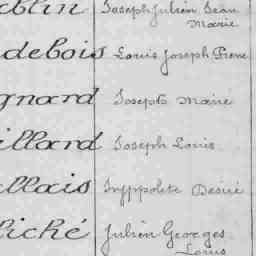 eblin Joseph Julien Jean
Marie
debois Louis Joseph Pierre
gnard Joseph Marie
illard Joseph Louis
llais Hyppolite Désiré
liché Julien Georges
Louis